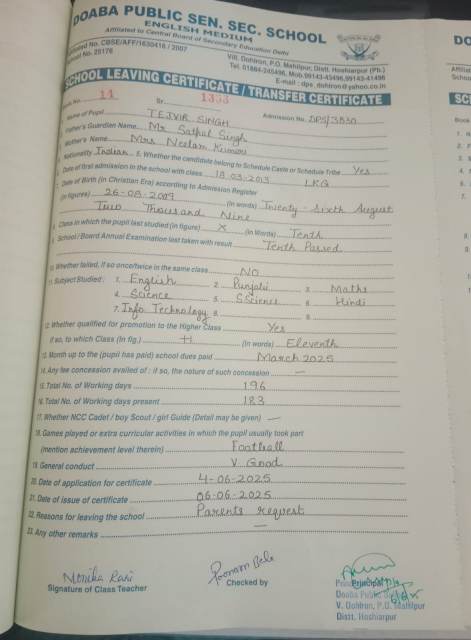 DOABA PUBLIC SEN. SEC. SCHOOL
ENGLISH MEDIUM
Affiliated to Central Board of Secondary Education Delhi
Affiliated No. CBSE/AFF/1630416 / 2007
School No. 20176
Vill. Dohlron, P.O. Mahilpur, Distt. Hoshiarpur (Pb.)
Tel. 01884-245496, Mob. 99143-43496, 99143-41496
E-mail : dps_dohlron@yahoo.co.in
SCHOOL LEAVING CERTIFICATE / TRANSFER CERTIFICATE
Book No. 14 Sr. 1333 Admission No. DPS/3830
Name of Pupil TEJVIR SINGH
Father's/Guardian Name Mr Satpal Singh
Mother's Name Mrs Neelam Kumari
Nationality Indian 5. Whether the candidate belong to Schedule Caste or Schedule Tribe Yes
Date of first admission in the school with class 18.03.2013 LKG
Date of Birth (in Christian Era) according to Admission Register
(in figures) 26-08-2009 (in words) Twenty-Sixth August
Two Thousand Nine
Class in which the pupil last studied (in figure) X (in Words) Tenth
School / Board Annual Examination last taken with result Tenth Passed
10. Whether failed, if so once/twice in the same class NO
11. Subject Studied : 1. English 2. Punjabi 3. Maths
4. Science 5. S.Science 6. Hindi
7. Info. Technology 8. 9.
12. Whether qualified for promotion to the Higher Class Yes
If so, to which Class (in fig.) +1 (in words) Eleventh
13. Month up to the (pupil has paid) school dues paid March 2025
14. Any fee concession availed of : if so, the nature of such concession —
15. Total No. of Working days 196
16. Total No. of Working days present 183
17. Whether NCC Cadet / boy Scout / girl Guide (Detail may be given) —
18. Games played or extra curricular activities in which the pupil usually took part
(mention achievement level therein) Football
19. General conduct V. Good
20. Date of application for certificate 4-06-2025
21. Date of issue of certificate 06-06-2025
22. Reasons for leaving the school Parents request
23. Any other remarks —
Monika Rani
Signature of Class Teacher
Poonam Bala
Checked by
Principal
Doaba Public
V. Dohlron, P.O. Mahilpur
Distt. Hoshiarpur